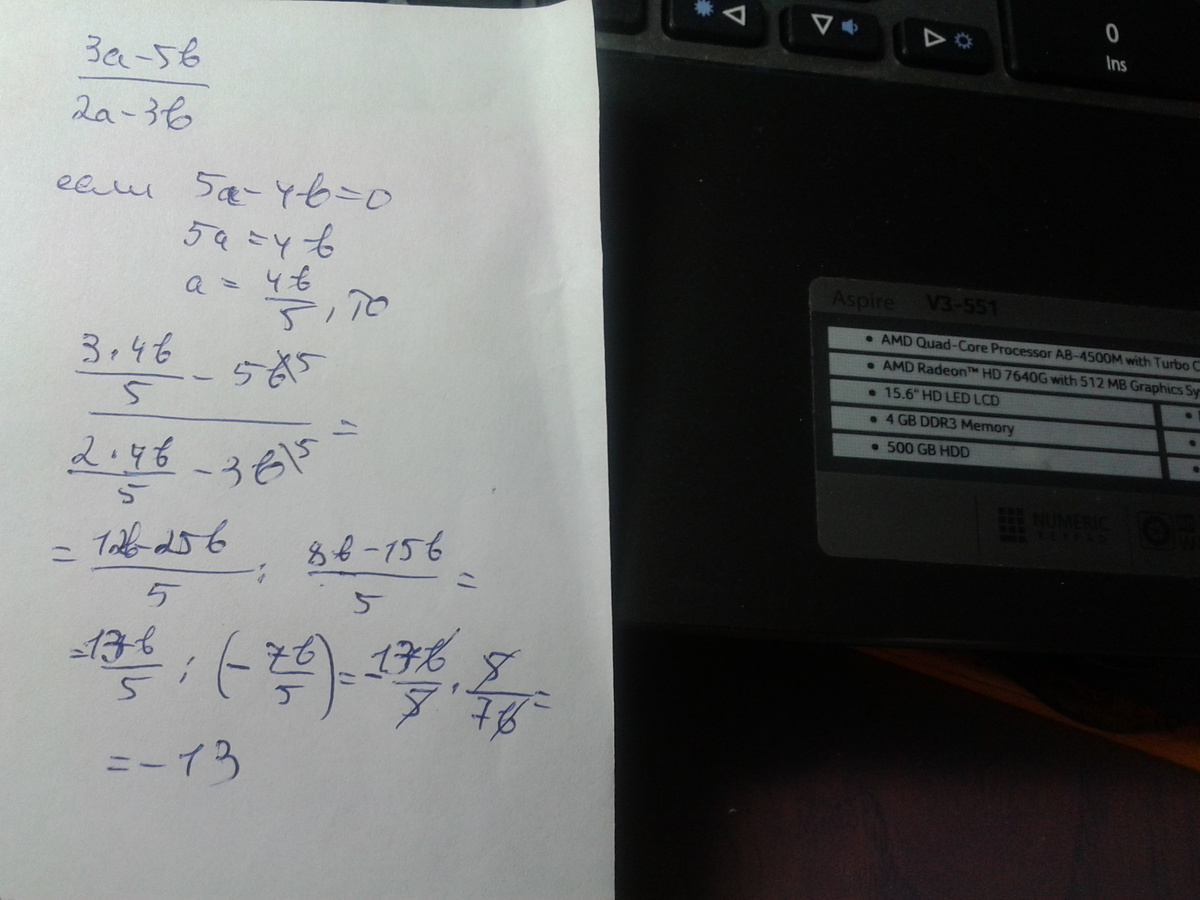 3a-5b
2a-3b
если 5a-4b=0
5a=4b
a= 4b/5, то
3·4b/5 - 5b\5
2·4b/5 - 3b\5 =
= 12b-25b/5 : 8b-15b/5 =
= 13b/5 : (- 7b/5) = -13b/5 · 5/7b =
= -13
0
Ins
Aspire V3-551
• AMD Quad-Core Processor A8-4500M with Turbo C
• AMD Radeon™ HD 7640G with 512 MB Graphics Sy
• 15.6" HD LED LCD
• 4 GB DDR3 Memory
• 500 GB HDD
NUMERIC
KEYPAD